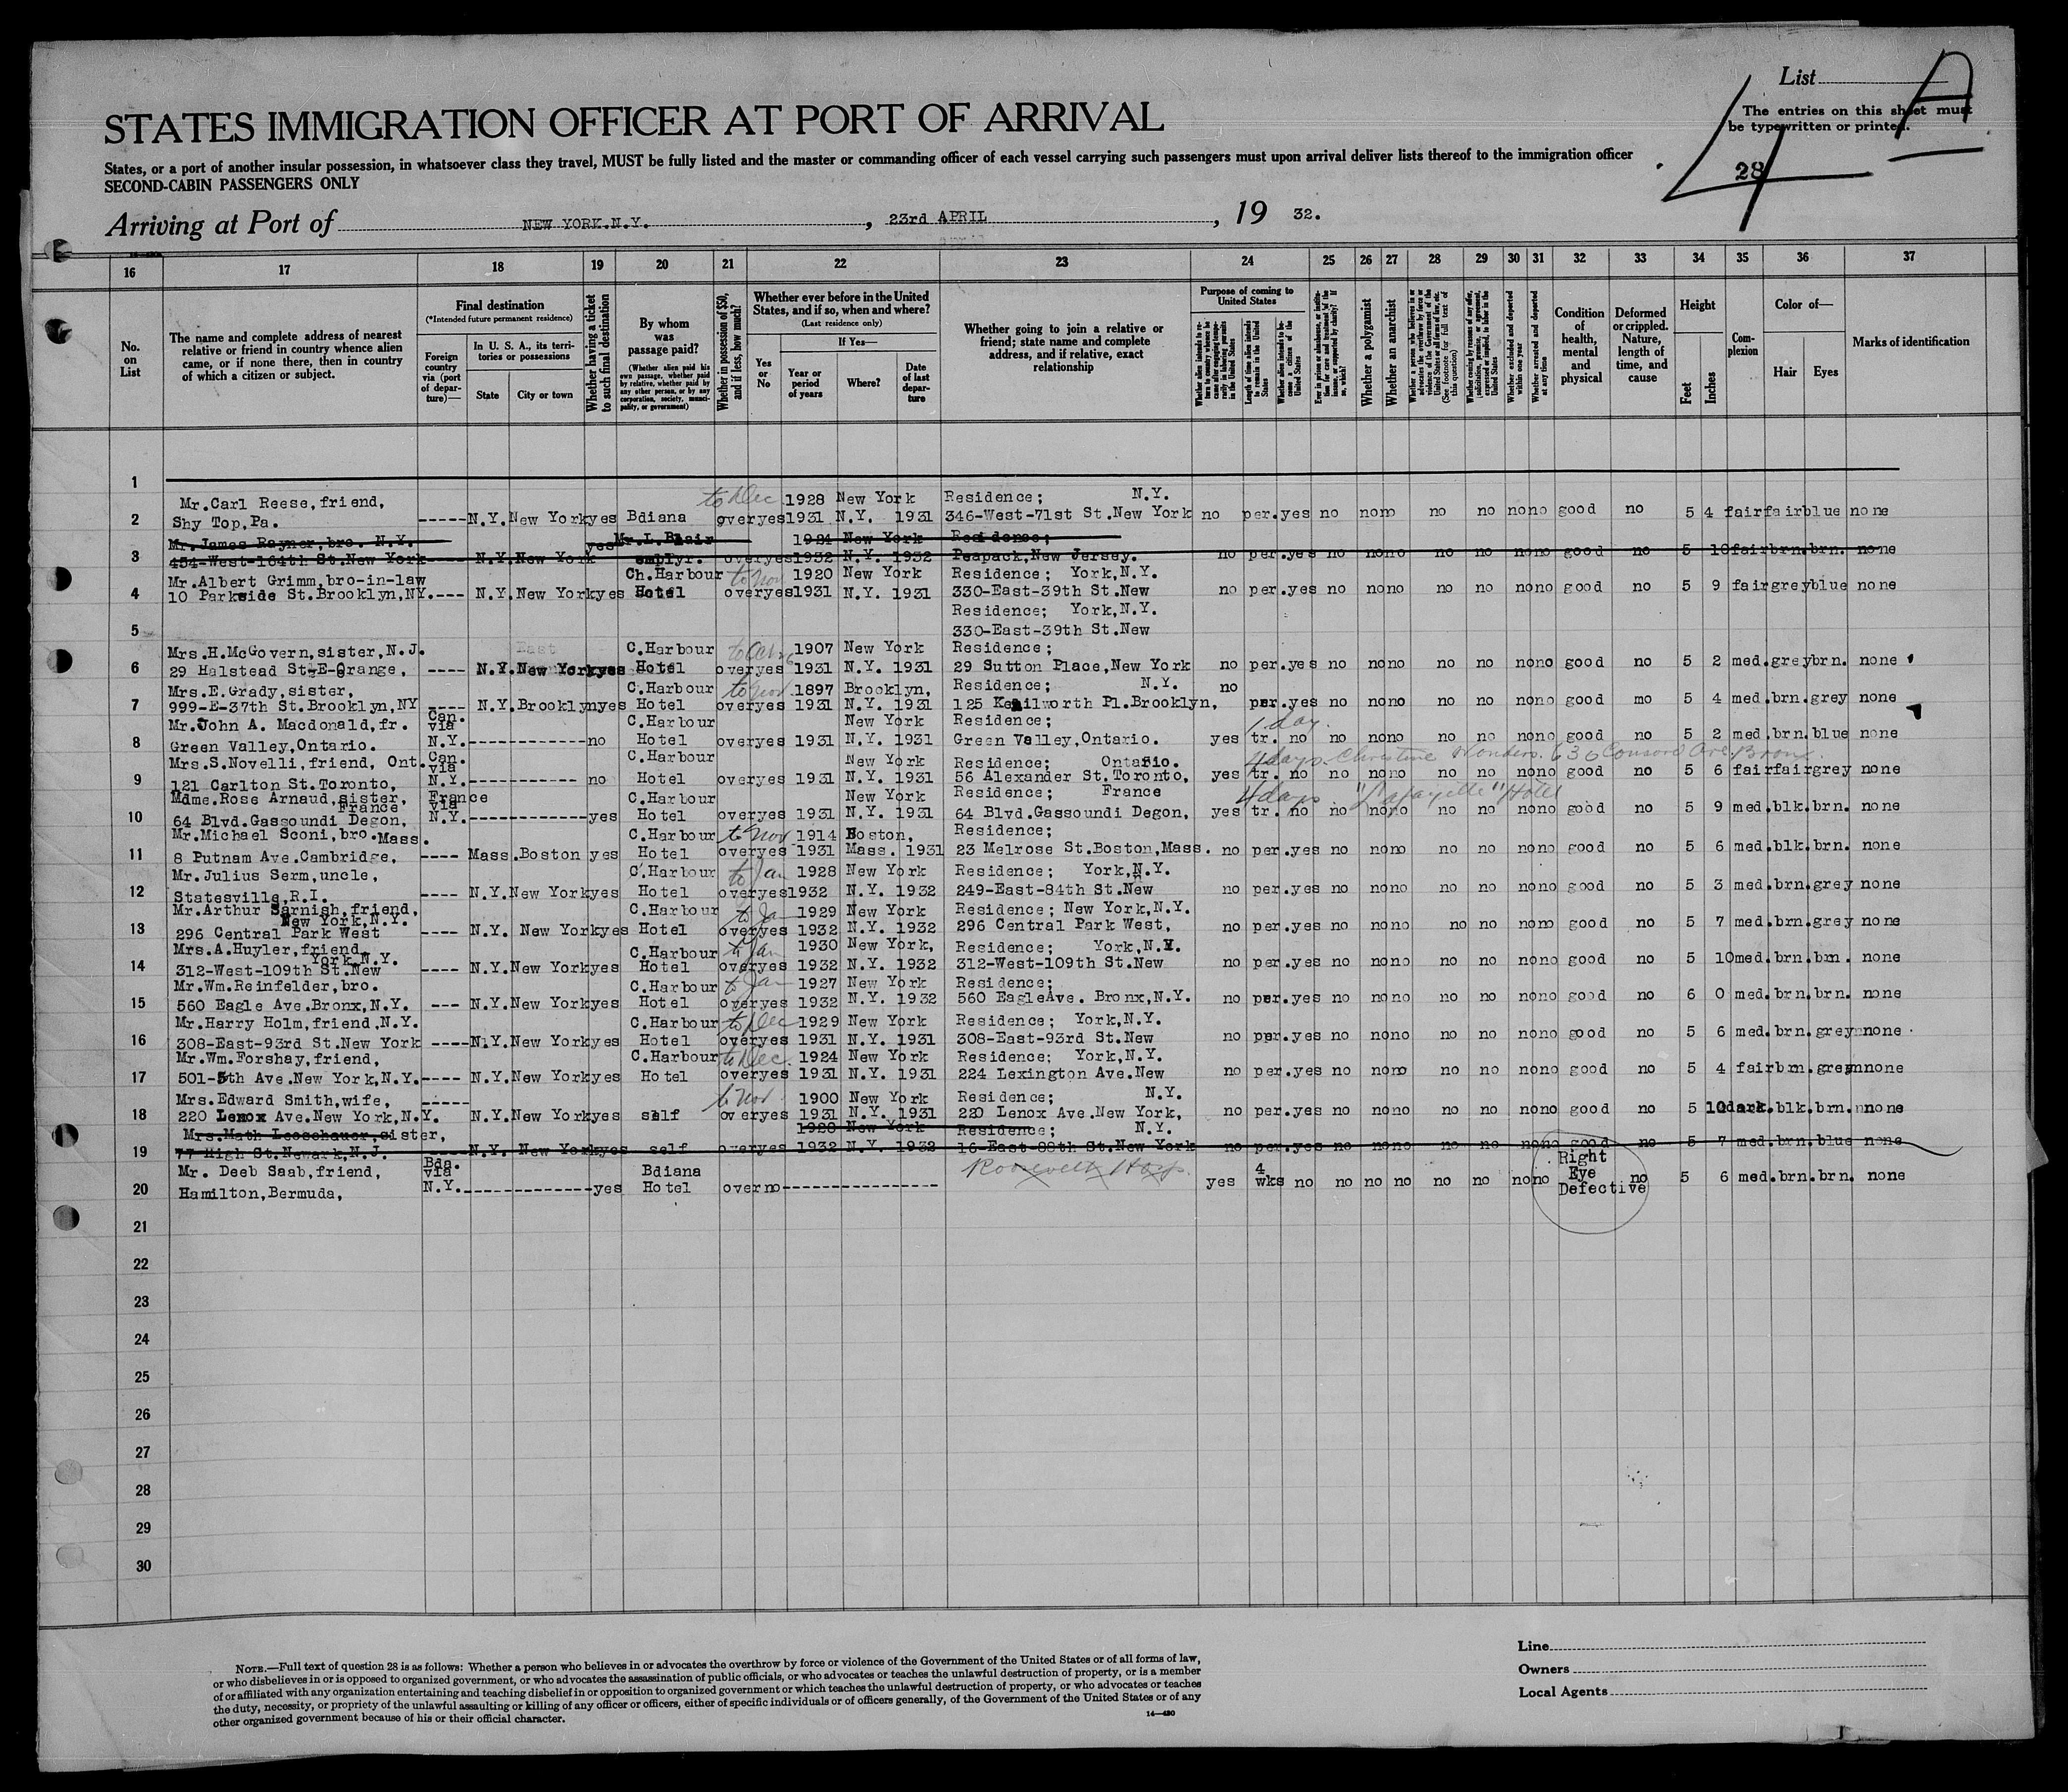 List
A
The entries on this sheet must
be typewritten or printed.
4
28
STATES IMMIGRATION OFFICER AT PORT OF ARRIVAL
States, or a port of another insular possession, in whatsoever class they travel, MUST be fully listed and the master or commanding officer of each vessel carrying such passengers must upon arrival deliver lists thereof to the immigration officer
SECOND-CABIN PASSENGERS ONLY
Arriving at Port of NEW YORK.N.Y. , 23rd APRIL , 19 32.
16 17 18 19 20 21 22 23 24 25 26 27 28 29 30 31 32 33 34 35 36 37
No. on List
The name and complete address of nearest relative or friend in country whence alien came, or if none there, then in country of which a citizen or subject.
Final destination
(*Intended future permanent residence)
Foreign country via (port of departure)—
In U. S. A., its territories or possessions
State City or town
Whether having a ticket to such final destination
By whom was passage paid?
(Whether alien paid his own passage, whether paid by relative, whether paid by any other person, or by any corporation, society, municipality, or government)
Whether in possession of $50, and if less, how much?
Whether ever before in the United States, and if so, when and where?
(Last residence only)
Yes or No
If Yes—
Year or period of years
Where?
Date of last departure
Whether going to join a relative or friend; state name and complete address, and if relative, exact relationship
Purpose of coming to United States
Length of time alien intends to remain in the United States
Whether alien intends to become a citizen of the United States
Whether a polygamist
Whether an anarchist
Whether excluded and deported within one year
Whether arrested and deported at any time
Condition of health, mental and physical
Deformed or crippled. Nature, length of time, and cause
Height
Feet Inches
Complexion
Color of—
Hair Eyes
Marks of identification
1
Mr.Carl Reese,friend, to Dec 1928 New York Residence; N.Y.
2 Shy Top,Pa. -----N.Y.New Yorkyes Bdiana overyes1931 N.Y. 1931 346-West-71st St.New York no per.yes no nono no no nono good no 5 4 fairfairblue none
Mr.James Rayner,bro. N.Y. yes Mr.L.Blair 1924 New York Residence;
3 454-West-164th St.New York N.Y.New York emplyr. overyes1932 N.Y. 1932 Peapack,New Jersey. no per.yes no nono no no nono good no 5 10fairbrn.brn. none
Mr.Albert Grimm,bro-in-law Ch.Harbour to Nov 1920 New York Residence; York,N.Y.
4 10 Parkside St.Brooklyn,NY.--- N.Y.New Yorkyes Hotel overyes1931 N.Y. 1931 330-East-39th St.New no per.yes no nono no no nono good no 5 9 fairgreyblue none
Residence; York,N.Y.
5 330-East-39th St.New
Mrs.H.McGovern,sister,N.J. East C.Harbour to Oct 1907 New York Residence;
6 29 Halstead St-E-Orange, ---- N.Y.New Yorkyes Hotel overyes 1931 N.Y. 1931 29 Sutton Place,New York no per.yes no nono no no nono good no 5 2 med.greybrn. none
Mrs.E.Grady,sister, C.Harbour to Nov 1897 Brooklyn, Residence; N.Y. no
7 999-E-37th St.Brooklyn,NY ---- N.Y.Brooklynyes Hotel overyes 1931 N.Y. 1931 125 Kenilworth Pl.Brooklyn, per.yes no nono no no nono good mo 5 4 med.brn.grey none
Mr.John A. Macdonald,fr. Can. via C.Harbour New York Residence; 1 day.
8 Green Valley,Ontario. N.Y.------------no Hotel overyes 1931 N.Y. 1931 Green Valley,Ontario. yes tr. no no nono no no nono good no 5 2 med.brn.blue none
Mrs.S.Novelli,friend, Ont. Can. via C.Harbour New York Residence; Ontario. 4 days Christine 630 Concord Ave. Bronx.
9 121 Carlton St.Toronto, N.Y.----------- no Hotel overyes 1931 N.Y. 1931 56 Alexander St.Toronto, yes tr. no no nono no no nono good no 5 6 fairfairgrey none
Mdme.Rose Arnaud,sister, France France via C.Harbour New York Residence; France 4 days "Lafayette" Hotel
10 64 Blvd.Gassoundi Degon, N.Y.------------yes Hotel overyes 1931 N.Y. 1931 64 Blvd.Gassoundi Degon, yes tr. no no nono no no nono good no 5 9 med.blk.brn. none
Mr.Michael Sconi,bro.Mass. C.Harbour to Nov 1914 Boston, Residence;
11 8 Putnam Ave.Cambridge, ---- Mass.Boston yes Hotel overyes 1931 Mass. 1931 23 Melrose St.Boston,Mass. no per.yes no nono no no nono good no 5 6 med.blk.brn. none
Mr.Julius Serm,uncle, C.Harbour to Jan 1928 New York Residence; York,N.Y.
12 Statesville,R.I. ---- N.Y.New Yorkyes Hotel overyes1932 N.Y. 1932 249-East-84th St.New no per.yes no nono no no nono good no 5 3 med.brn.grey none
Mr.Arthur Sarnish,friend, New York,N.Y. C.Harbour to Jan 1929 New York Residence; New York,N.Y.
13 296 Central Park West ---- N.Y. New Yorkyes Hotel overyes 1932 N.Y. 1932 296 Central Park West, no per.yes no nono no no nono good no 5 7 med.brn.grey none
Mrs.A.Huyler,friend, York,N.Y. C.Harbour to Jan 1930 New York, Residence; York,N.Y.
14 312-West-109th St.New ---- N.Y.New Yorkyes Hotel overyes 1932 N.Y. 1932 312-West-109th St.New no per.yes no nono no no nono good no 5 10med.brn.brn. none
Mr.Wm.Reinfelder,bro. C.Harbour to Jan 1927 New York Residence;
15 560 Eagle Ave.Bronx,N.Y. --- N.Y.New Yorkyes Hotel overyes 1932 N.Y. 1932 560 EagleAve. Bronx,N.Y. no per.yes no nono no no nono good no 6 0 med.brn.brn. none
Mr.Harry Holm,friend,N.Y. C.Harbour to Dec 1929 New York Residence; York,N.Y.
16 308-East-93rd St.New York ----N.Y.New Yorkyes Hotel overyes 1931 N.Y. 1931 308-East-93rd St.New no per.yes no nono no no nono good no 5 6 med.brn.greynnone
Mr.Wm.Forshay,friend, C.Harbour to Dec. 1924 New York Residence; York,N.Y.
17 501-5th Ave.New York,N.Y.---- N.Y.New Yorkyes Hotel overyes 1931 N.Y. 1931 224 Lexington Ave.New no per.yes no nono no no nono good no 5 4 fairbrn.greynnone
Mrs.Edward Smith,wife, ----- to Nov. 1900 New York Residence; N.Y.
18 220 Lenox Ave.New York,N.Y. N.Y.New Yorkyes self overyes 1931 N.Y. 1931 220 Lenox Ave.New York, no per.yes no nono no no nono good no 5 10dark.blk.brn.nnone
Mrs.Math Leoschauer,sister, 1928 New York Residence; N.Y.
19 77 High St.Newark,N.J. ----N.Y. New Yorkyes self overyes 1932 N.Y. 1932 16-East-88th St.New York no per.yes no nono no no nono good no 5 7 med.brn.blue none
Mr. Deeb Saab,friend, Bda. via Bdiana Roosevelt Hosp. 4 Right Eye
20 Hamilton,Bermuda, N.Y.-------------yes Hotel overno---------------- yes wks no no no no no no nono Defective no 5 6 med.brn.brn. none
21
22
23
24
25
26
27
28
29
30
NOTE.—Full text of question 28 is as follows: Whether a person who believes in or advocates the overthrow by force or violence of the Government of the United States or of all forms of law,
or who disbelieves in or is opposed to organized government, or who advocates the assassination of public officials, or who advocates or teaches the unlawful destruction of property, or is a member
of or affiliated with any organization entertaining and teaching disbelief in or opposition to organized government or which teaches the unlawful destruction of property, or who advocates or teaches
the duty, necessity, or propriety of the unlawful assaulting or killing of any officer or officers, either of specific individuals or of officers generally, of the Government of the United States or of any
other organized government because of his or their official character.
14—430
Line
Owners
Local Agents